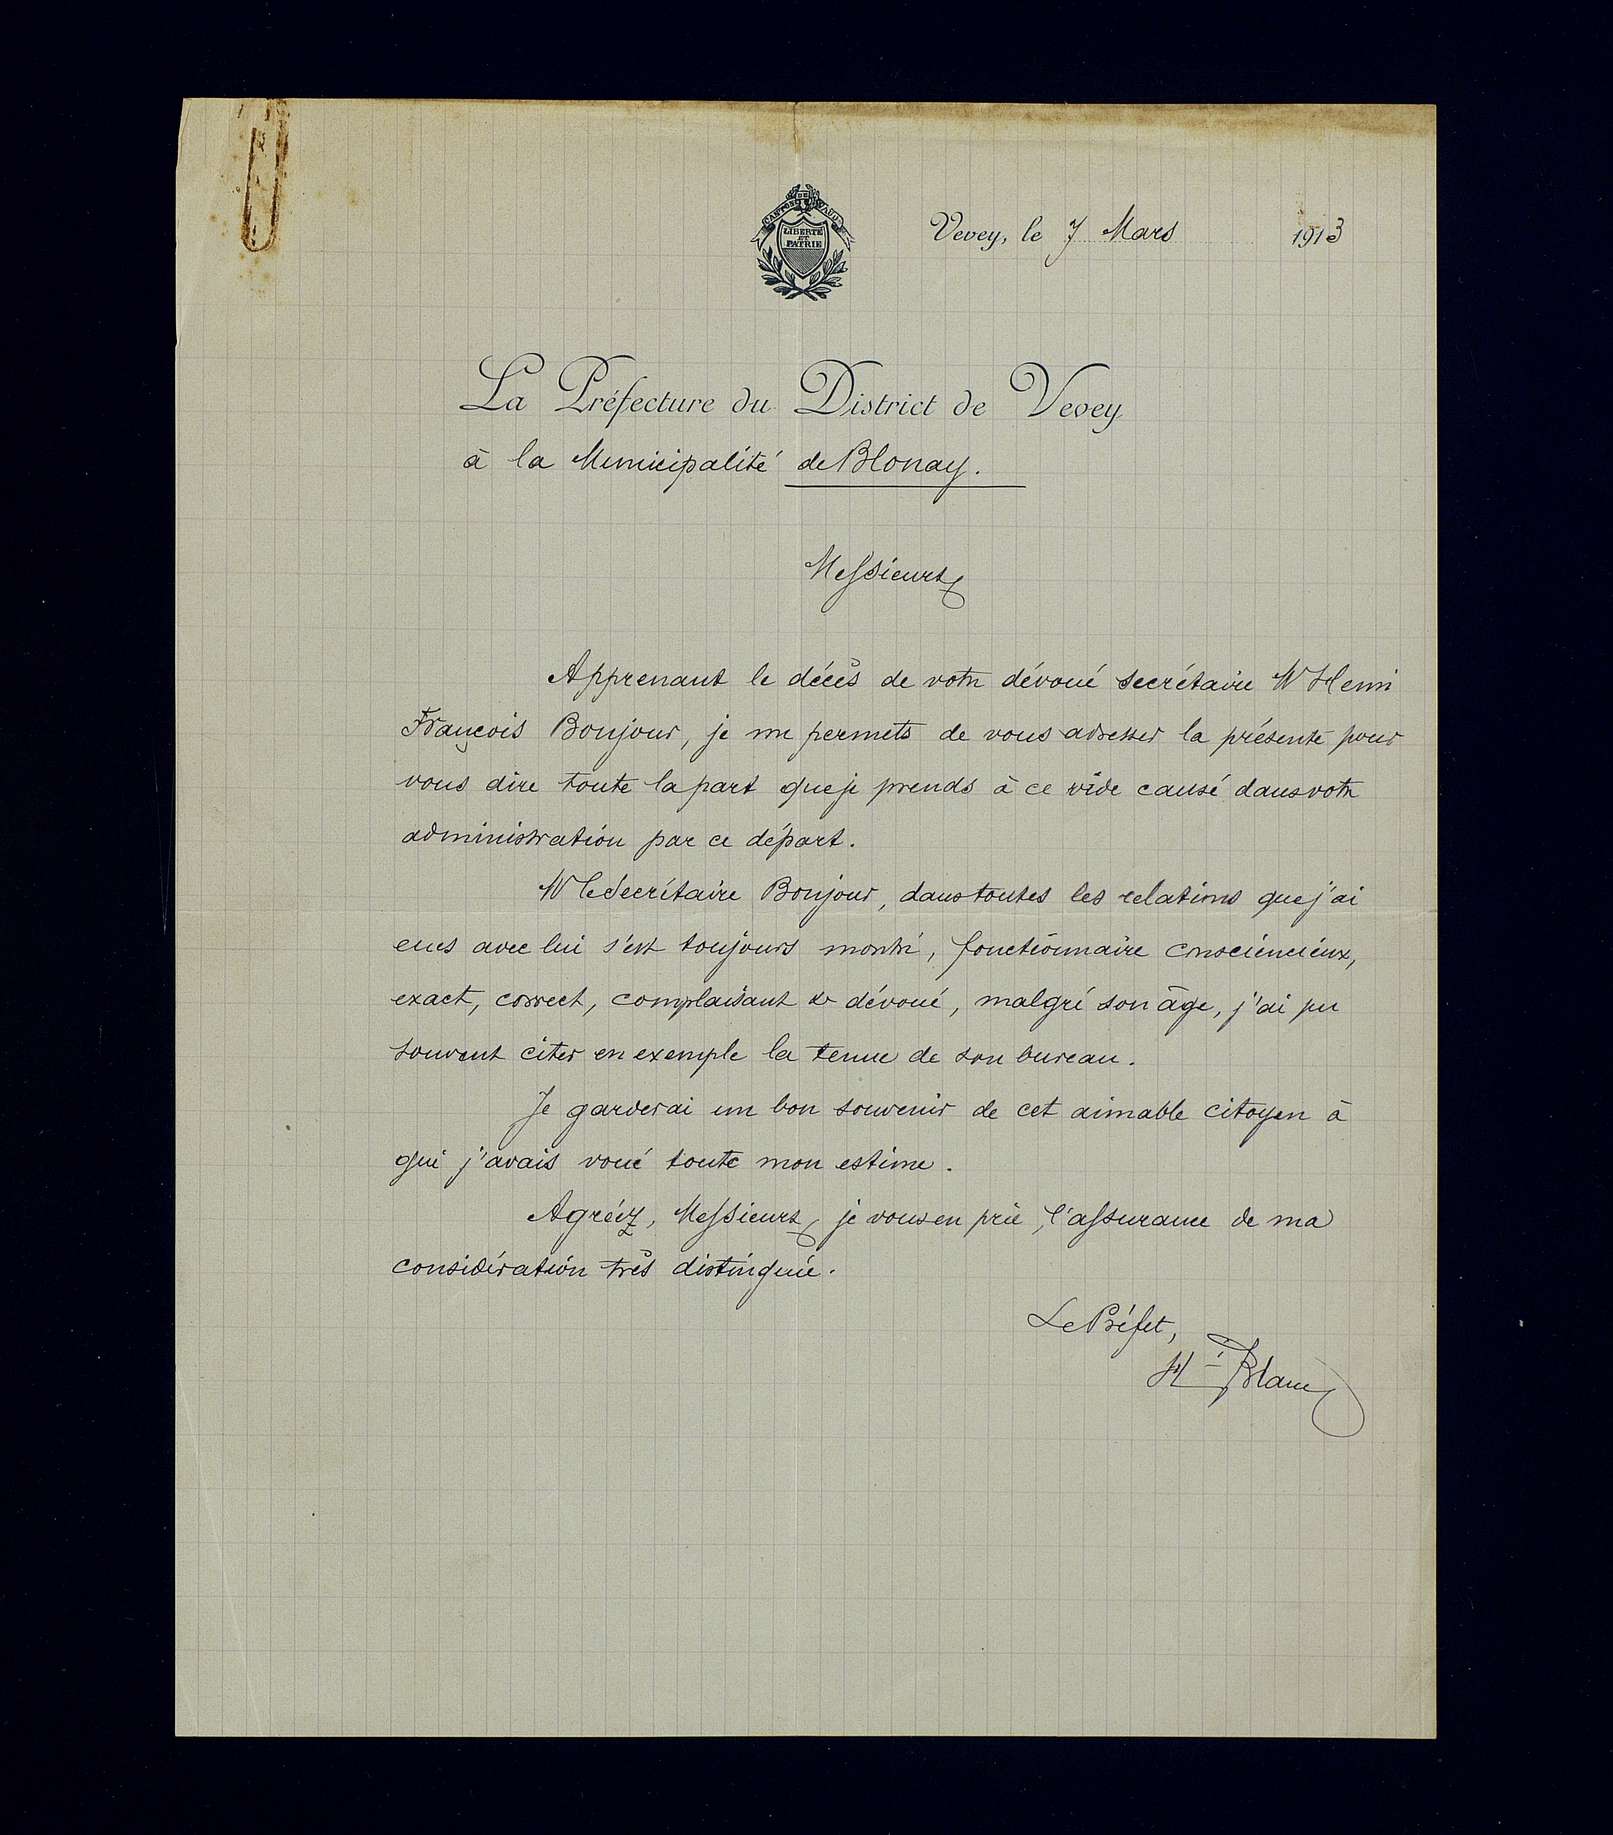 CANTON DE VAUD
LIBERTÉ
ET
PATRIE
Vevey, le 7 Mars 1913
La Préfecture du District de Vevey
à la Municipalité de Blonay.
Messieurs,
Apprenant le décès de votre dévoué secrétaire Mr Henri
François Bonjour, je me permets de vous adresser la présente pour
vous dire toute la part que je prends à ce vide causé dans votre
administration par ce départ.
Mr le Secrétaire Bonjour, dans toutes les relations que j'ai
eues avec lui s'est toujours montré, fonctionnaire consciencieux,
exact, correct, complaisant & dévoué, malgré son âge, j'ai pu
souvent citer en exemple la tenue de son bureau.
Je garderai un bon souvenir de cet aimable citoyen à
qui j'avais voué toute mon estime.
Agréez, Messieurs, je vous en prie, l'assurance de ma
considération très distinguée.
Le Préfet,
Hi Blanc